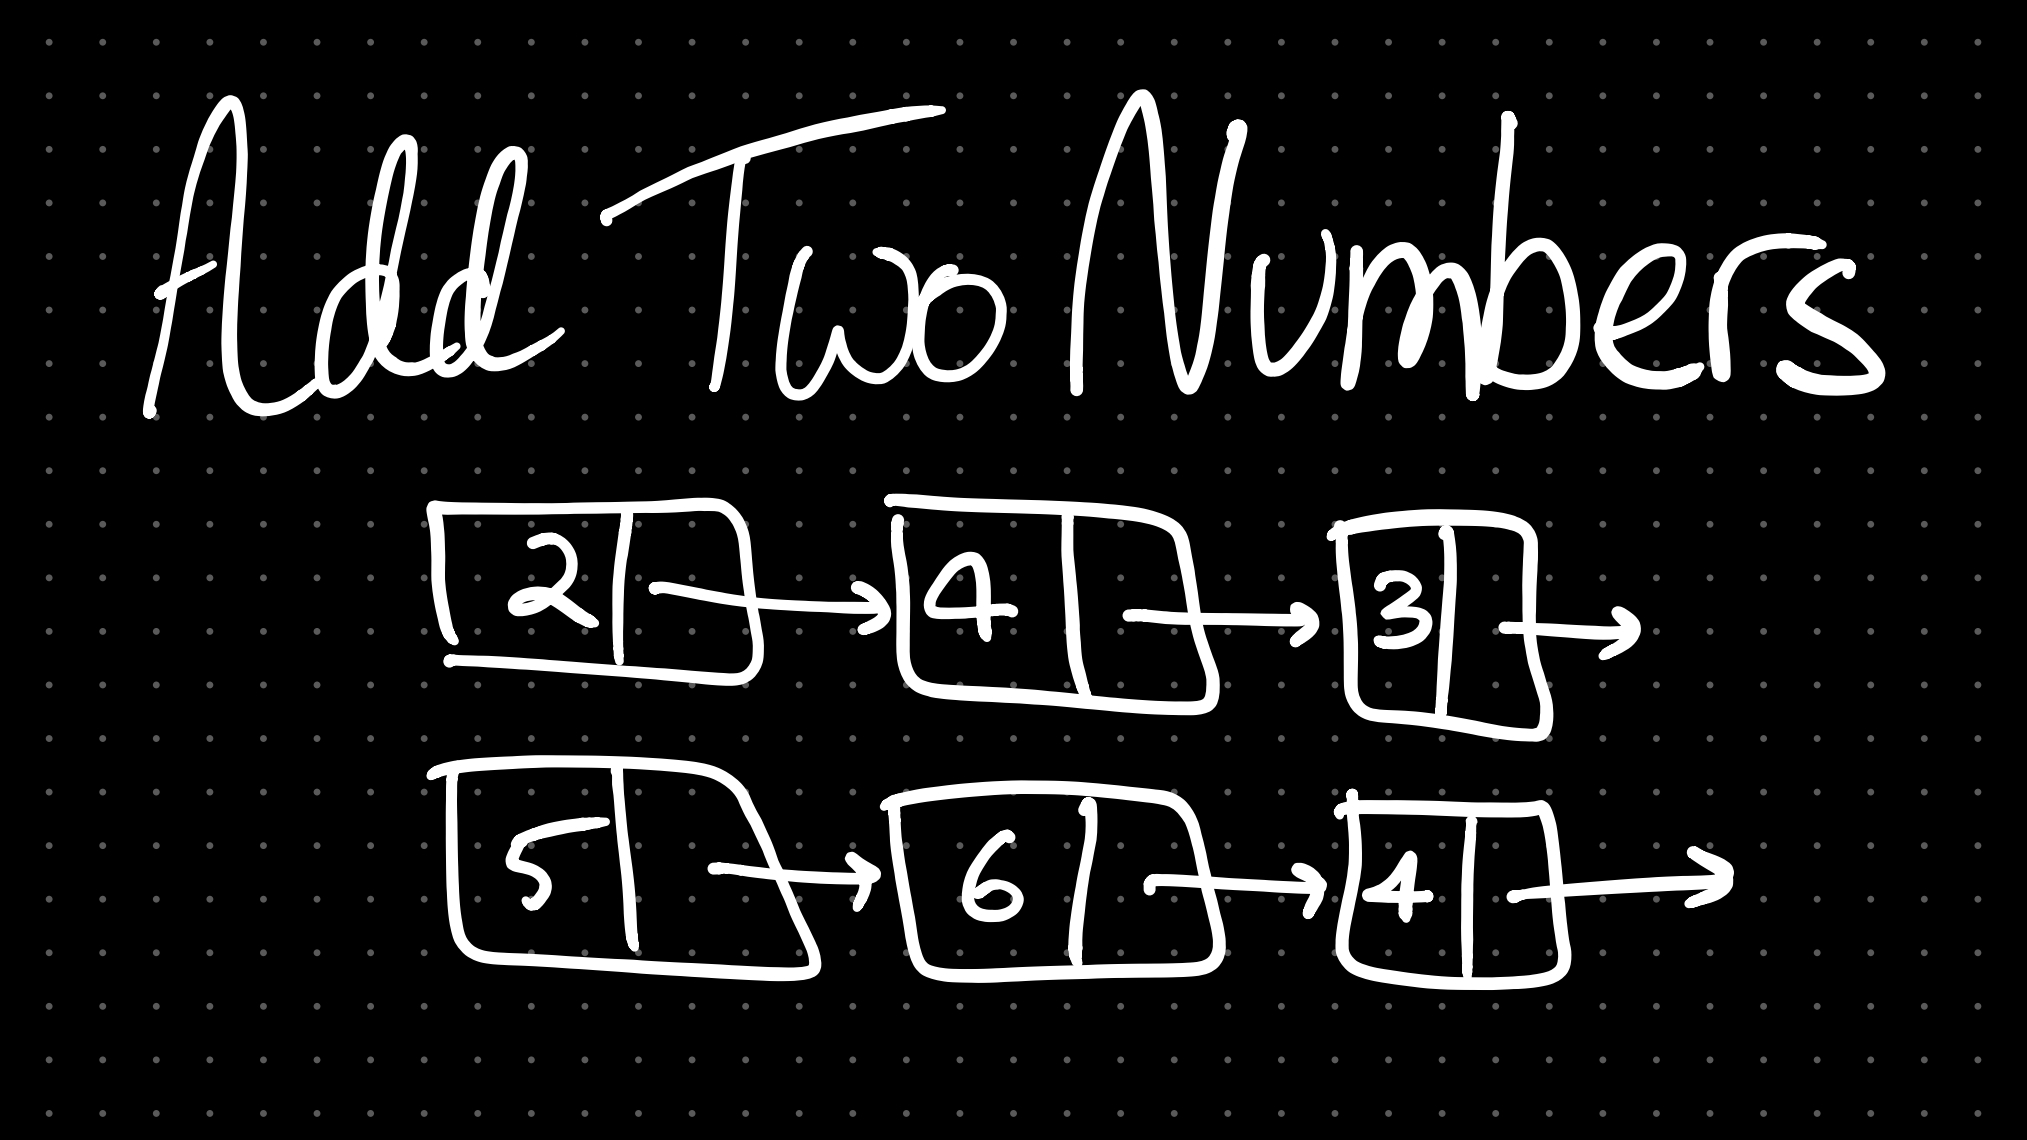 Add Two Numbers
2 4 3
5 6 4